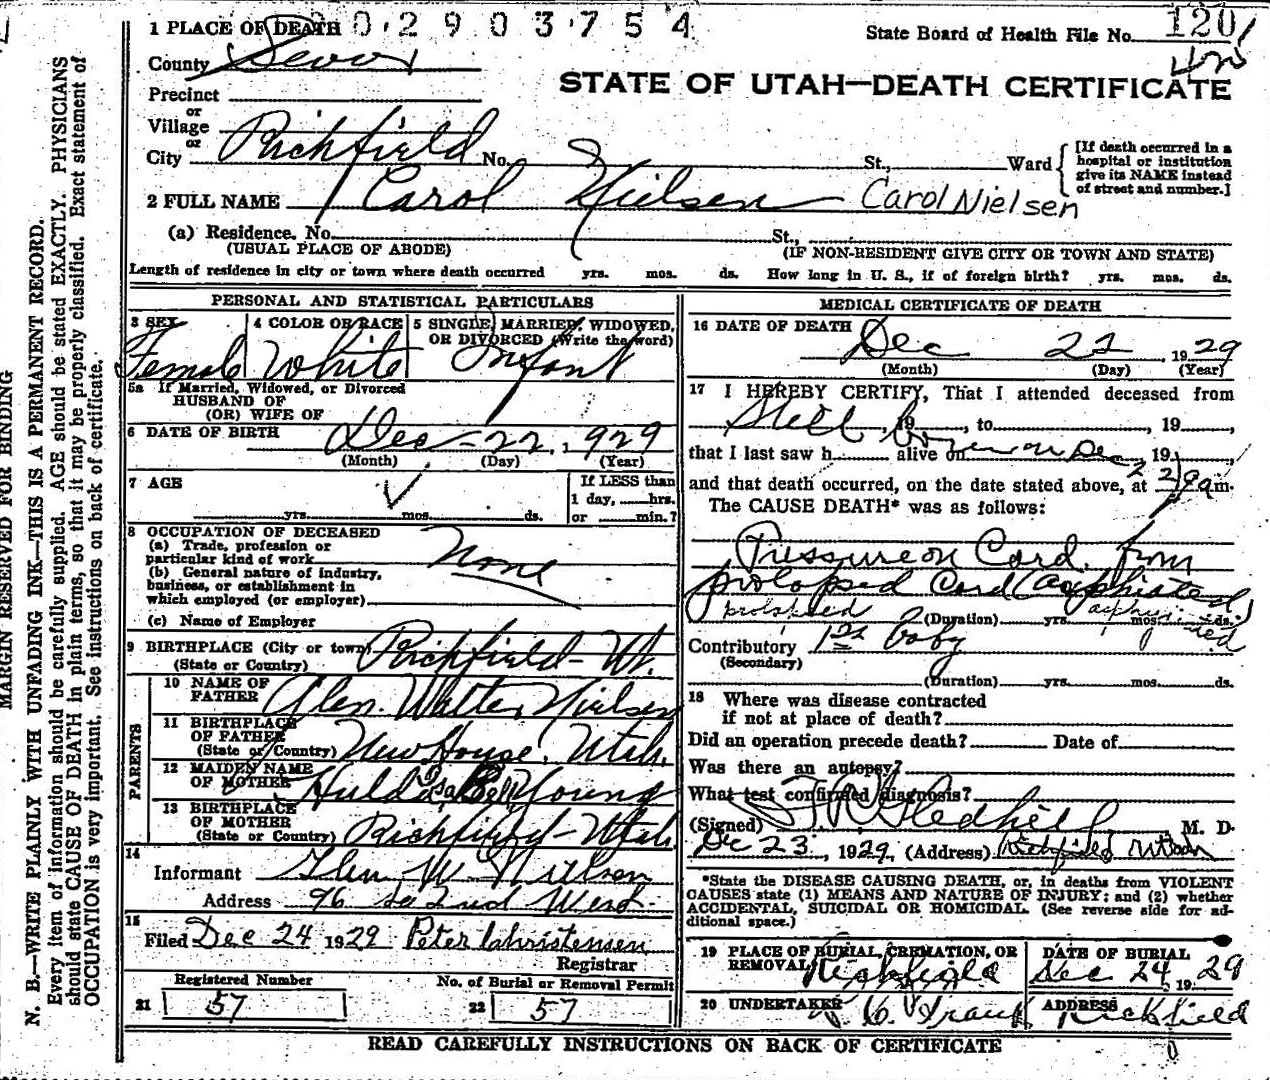 1 PLACE OF DEATH 0 2 9 0 3 7 5 4
State Board of Health File No. 120
County Sevier
STATE OF UTAH—DEATH CERTIFICATE
Precinct
or
Village
or
City Richfield No. St., Ward
[If death occurred in a
hospital or institution
give its NAME instead
of street and number.]
2 FULL NAME Carol Nielsen Carol Nielsen
(a) Residence. No. St.,
(USUAL PLACE OF ABODE) (IF NON-RESIDENT GIVE CITY OR TOWN AND STATE)
Length of residence in city or town where death occurred yrs. mos. ds. How long in U. S., if of foreign birth? yrs. mos. ds.
PERSONAL AND STATISTICAL PARTICULARS
3 SEX 4 COLOR OR RACE 5 SINGLE, MARRIED, WIDOWED,
OR DIVORCED (Write the word)
Female White Infant
5a If Married, Widowed, or Divorced
HUSBAND OF
(OR) WIFE OF
6 DATE OF BIRTH Dec - 22, 929
(Month) (Day) (Year)
7 AGE
yrs. mos. ds.
If LESS than
1 day, hrs.
or min.?
8 OCCUPATION OF DECEASED
(a) Trade, profession or
particular kind of work
None
(b) General nature of industry,
business, or establishment in
which employed (or employer)
(c) Name of Employer
9 BIRTHPLACE (City or town) Richfield - Ut.
(State or Country)
PARENTS
10 NAME OF
FATHER Glen. Walter Nielsen
11 BIRTHPLACE
OF FATHER
(State or Country) New House, Utah.
12 MAIDEN NAME
OF MOTHER Huld Isabell Young
13 BIRTHPLACE
OF MOTHER
(State or Country) Richfield - Utah
14
Informant Glen W Nielsen
Address 96 So 2nd West
15
Filed Dec 24 1929 Peter Christensen
Registrar
Registered Number No. of Burial or Removal Permit
21 57 22 57
MEDICAL CERTIFICATE OF DEATH
16 DATE OF DEATH
Dec 22, 1929
(Month) (Day) (Year)
17 I HEREBY CERTIFY, That I attended deceased from
Still born, 19, to, 19,
that I last saw h alive on Dec, 19,
and that death occurred, on the date stated above, at m.
The CAUSE DEATH* was as follows:
Pressure on Cord from
prolapsed Cord (asphixiated)
prolapsed asphyxiated
(Duration) yrs. mos. ds.
Contributory 1st baby
(Secondary)
(Duration) yrs. mos. ds.
18 Where was disease contracted
if not at place of death?
Did an operation precede death? Date of
Was there an autopsy?
What test confirmed diagnosis?
(Signed) Gledhill, M. D.
Dec 23, 1929, (Address) Richfield Utah
*State the DISEASE CAUSING DEATH, or, in deaths from VIOLENT
CAUSES state (1) MEANS AND NATURE OF INJURY: and (2) whether
ACCIDENTAL, SUICIDAL OR HOMICIDAL. (See reverse side for ad-
ditional space.)
19 PLACE OF BURIAL, CREMATION, OR
REMOVAL Richfield
DATE OF BURIAL
Dec 24, 1929
20 UNDERTAKER ADDRESS Richfield
READ CAREFULLY INSTRUCTIONS ON BACK OF CERTIFICATE
MARGIN RESERVED FOR BINDING
N. B.—WRITE PLAINLY WITH UNFADING INK—THIS IS A PERMANENT RECORD.
Every item of information should be carefully supplied. AGE should be stated EXACTLY. PHYSICIANS
should state CAUSE OF DEATH in plain terms, so that it may be properly classified. Exact statement of
OCCUPATION is very important. See instructions on back of certificate.